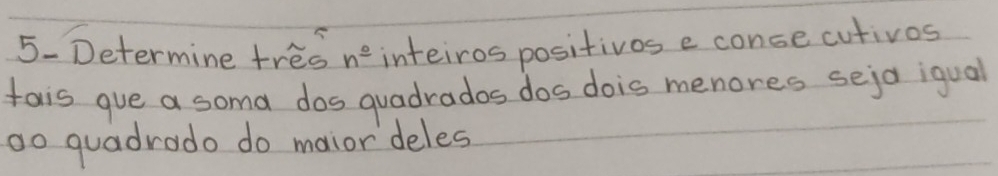 5- Determine três nº inteiros positivos e consecutivos
tais que a soma dos quadrados dos dois menores seja igual
ao quadrado do maior deles